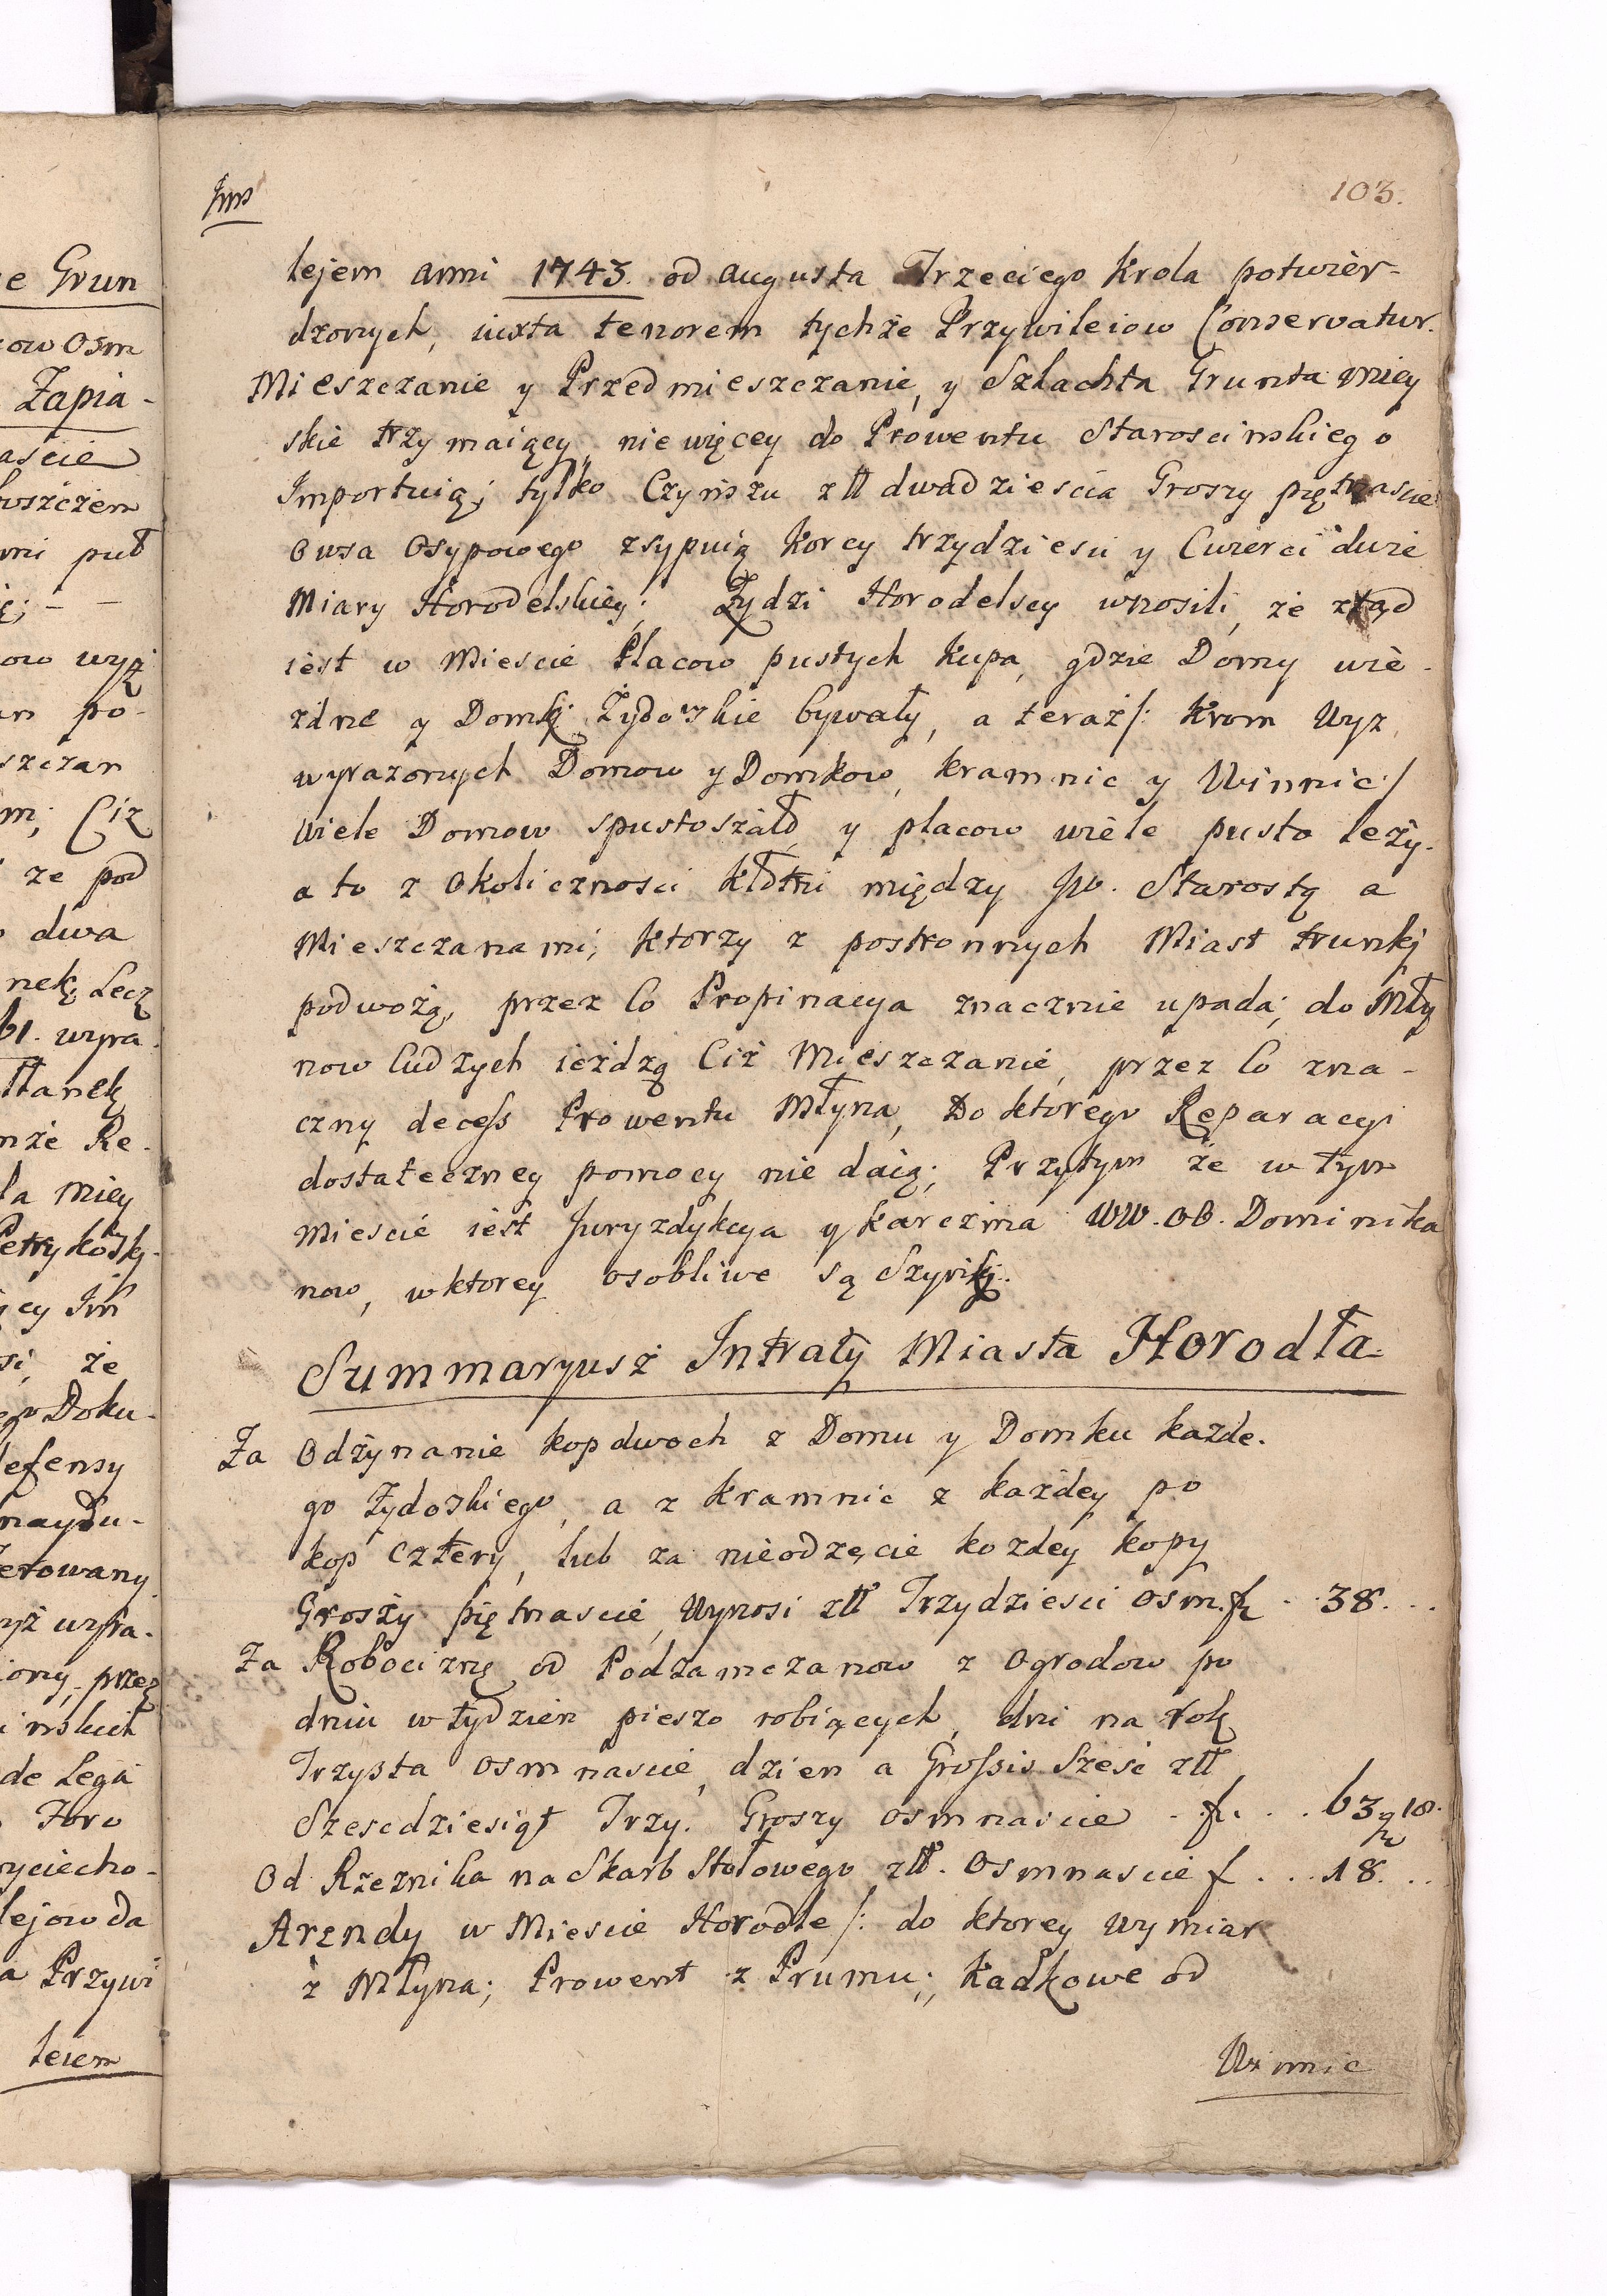 103.
lejem anni 1743. od augusta Trzeciego Krola potwier-
dzonych, iuxta tenorem tychże Przywileiow Conservatur.
Mieszczanie y Przedmieszczanie, y Szlachta Grunta miey
skie trzymaiący, niewięcey do Prowentu Starościnskiego
Importuią; tylko Czynszu złł dwadzieścia Groszy piętnascie
Owsa Osypowego zsypuią Korcy trzydziesci y Cwierci dwie
Miary Horodelskiey; Żydzi Horodelscy wnosili, że ztąd
iest w Miescie Placow pustych Kupa, gdzie Domy wie-
zdne y Domki Żydoskie bywały, a teraz /: Krom Wyz
wyrazonych Domow y Domkow, kramnic y Winnic :/
Wiele Domow spustoszało y placow wiele pusto leży.
a to z Okolicznosci kłotni między Jw. Starostą a
Mieszczanami; ktorzy z postronnych Miast trunki
podwożą, przez Co Propinacya znacznie upada; do Mły
now Cudzych ieżdzą Ciż Mieszczanie, przez Co zna-
czny decess Prowentu Młyna, Do ktorego Reparacyi
dostateczney pomocy nie daią; Przytym że w tym
Miescie iest Juryzdykcya y karczma WW. OO. Dominika
now, w ktorey osobliwe są Szynki.
Summaryusz Intraty Miasta Horodła.
Za Odżynanie kop dwoch z Domu y Domku każde.
go Żydoskiego, a z Kramnic z każdey po
kop Cztery, lub za nieodzęcie kozdey kopy
Groszy piętnascie, Wynosi złł Trzydziesci Osm. f. . 38. . .
Za Robociznę od Podzamczanow z Ogrodow po
dniu w tydzień pieszo robiących, dni na rok
Trzysta osmnascie, dzien a Grossis Szesc złł
Szescdziesiąt Trzy. Groszy osmnascie . f. . . 63 g 18.
Od Rzeznika na Skarb Stołowego złł. Osmnascie f . . . 18. . .
Arendy w Miescie Horodle /: do ktorey wymiar
z Młyna; Prowent z Prumu; Kadkowe od